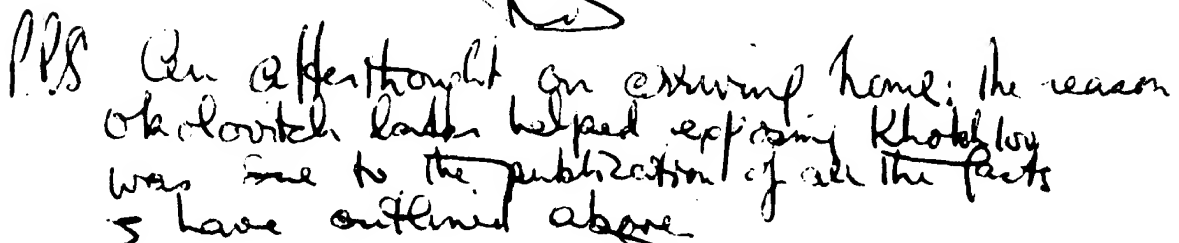 PPS An afterthought on arriving home: the reason
Okolovitch later helped exposing Khokhlov
was due to the publication of all the facts
I have outlined above